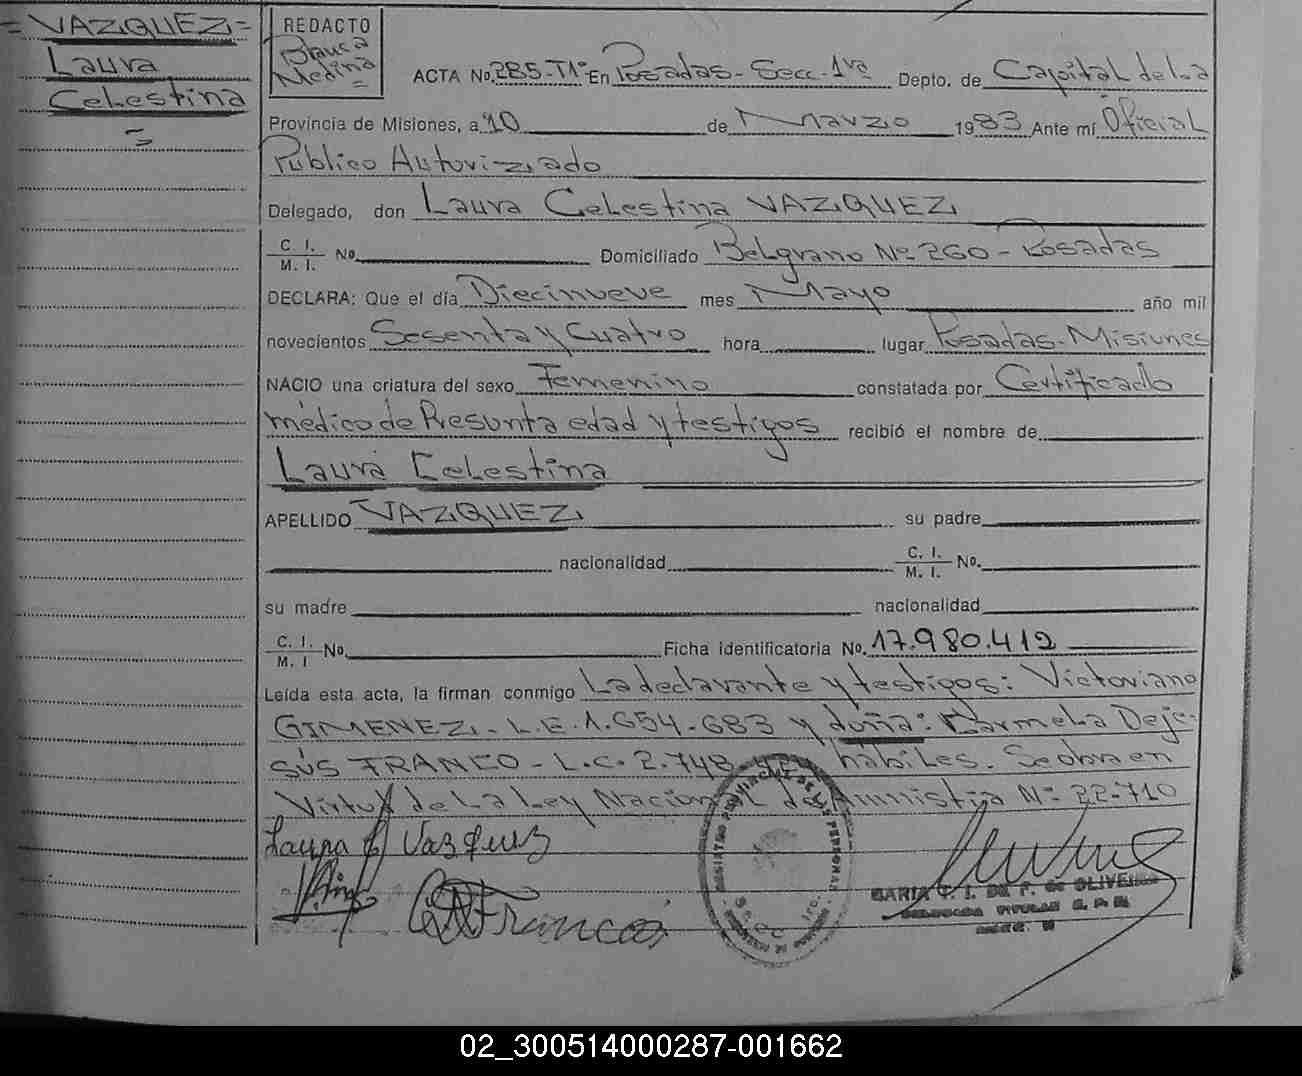 = VAZQUEZ =
Laura
Celestina
=
REDACTO
Blanca
Medina
=
ACTA No. 285-T1° En Posadas - Secc. 1ra Depto. de Capital de la
Provincia de Misiones, a 10 de Marzo 1983 Ante mí Oficial
Público Autorizado
Delegado, don Laura Celestina VAZQUEZ
C. I. / M. I. No. Domiciliado Belgrano No 260 - Posadas
DECLARA: Que el día Diecinueve mes Mayo año mil
novecientos Sesenta y Cuatro hora lugar Posadas - Misiones
NACIO una criatura del sexo Femenino constatada por Certificado
médico de Presunta edad y testigos recibió el nombre de
Laura Celestina
APELLIDO VAZQUEZ su padre
nacionalidad C. I. / M. I. No.
su madre nacionalidad
C. I. / M. I No. Ficha identificatoria No. 17.980.412
Leída esta acta, la firman conmigo La declarante y testigos: Victoriano
GIMENEZ - L.E. 1.654.683 y doña: Carmela Deje-
sús FRANCO - L.C. 2.748. hábiles. Se obra en
Virtud de La Ley Nacional de Amnistia N° 22.710
Laura C Vazquez
Franco
REGISTRO PROVINCIAL DE LAS PERSONAS
MARIA T. I. DE F. de OLIVEIRA
DELEGADA TITULAR R. P. P.
02_300514000287-001662